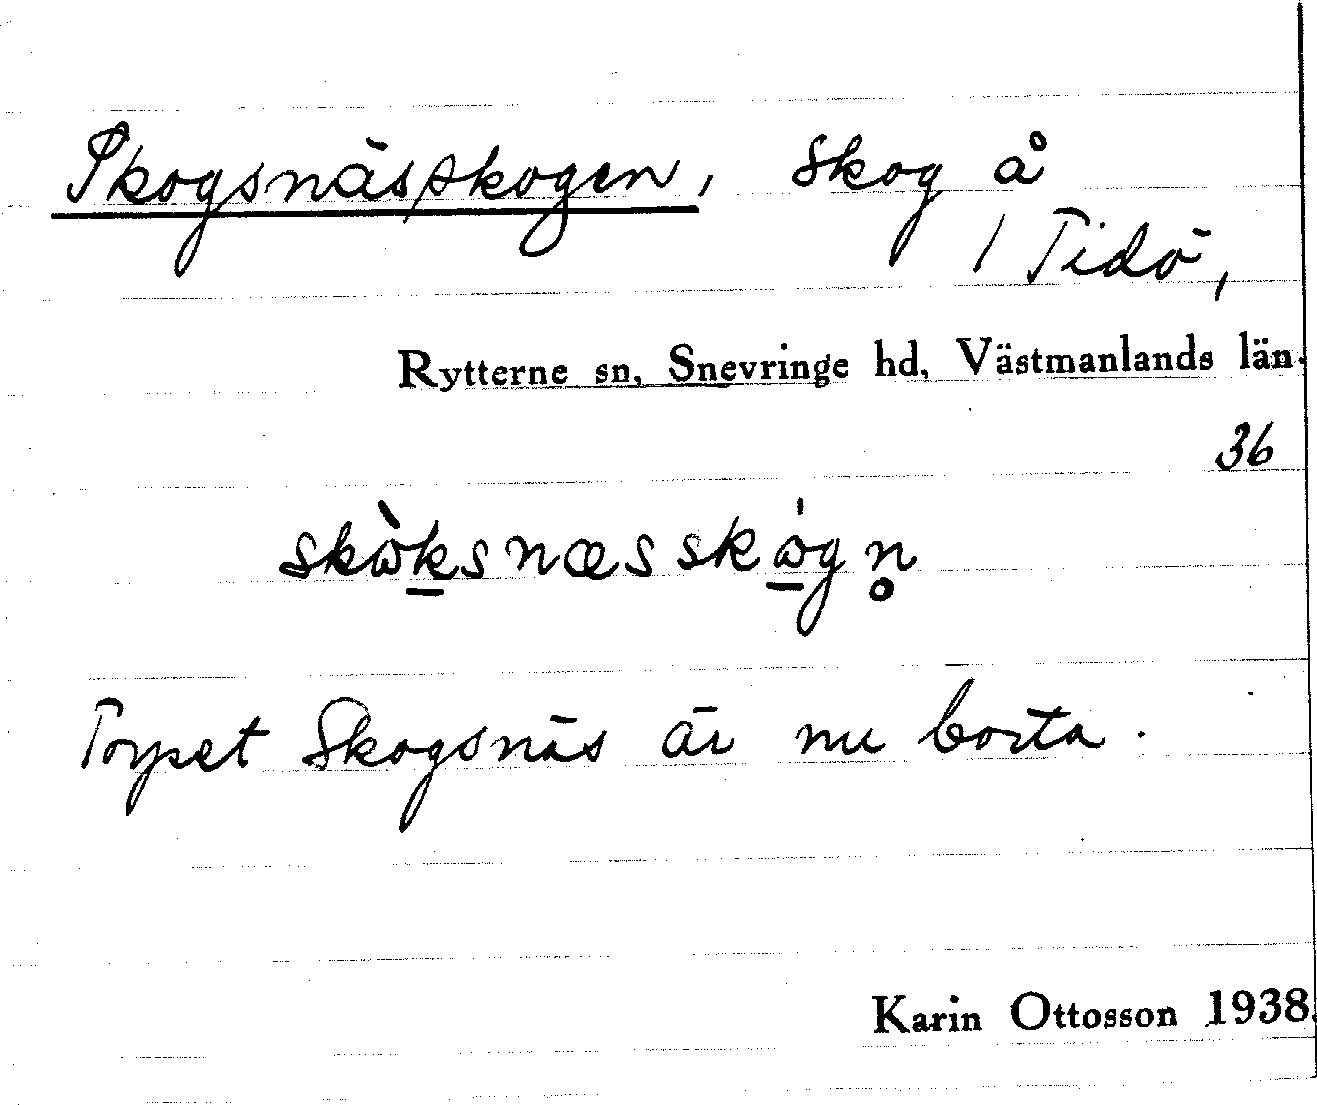 Skogsnässkogen, Skog å
1 Tidö,
Rytterne sn, Snevringe hd, Västmanlands län.
36
skὼksnæsskώgn̥
Torpet Skogsnäs är nu borta.
Karin Ottosson 1938.